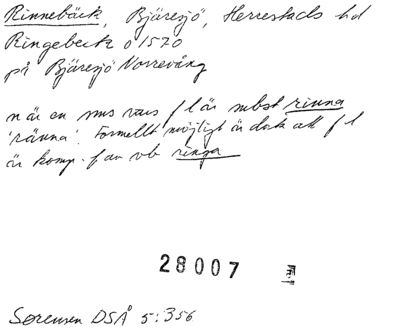 Rinnebäck, Bjäresjö, Herrestads hd
Ringebeck o 1570
på Bjäresjö Norrevång
när en ms vars f l är subst rinna
'ränna'. Formellt möjligt är dock att f l
är komp. f av vb ringa
28007
Sørensen DSÅ 5:356